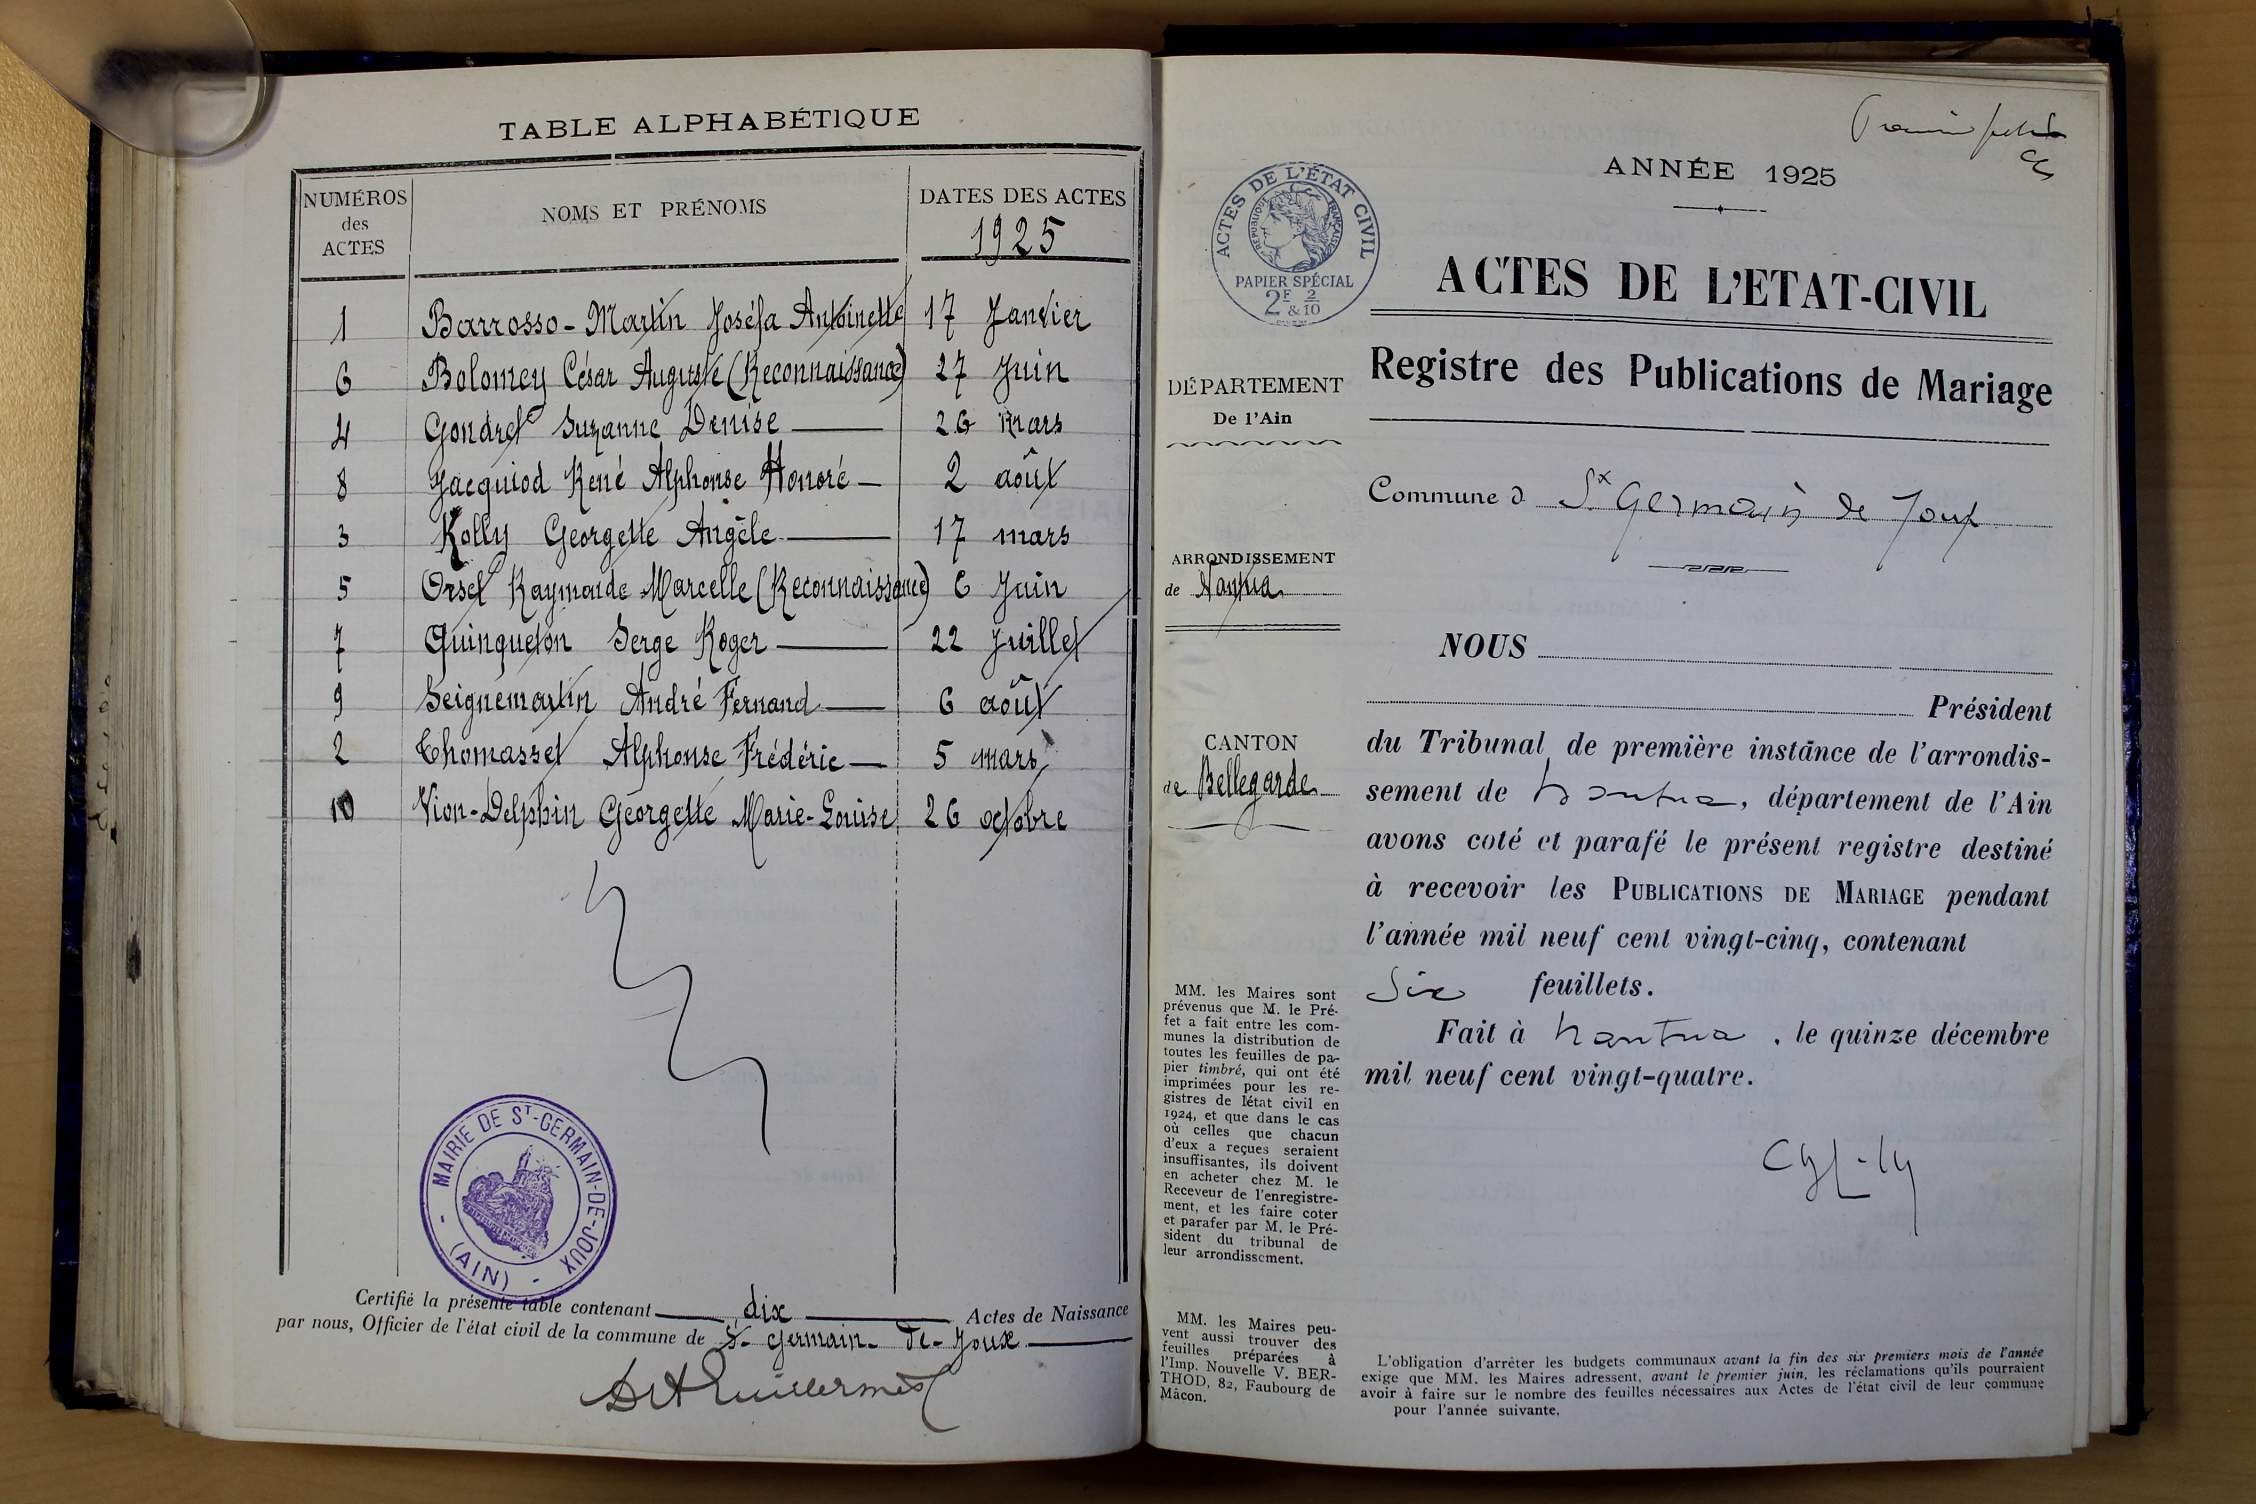 TABLE ALPHABÉTIQUE
NUMÉROS
des
ACTES
NOMS ET PRÉNOMS
DATES DES ACTES
1925
1 Barrosso - Martin Joséfa Antoinette 17 Janvier
6 Bolomey César Auguste (Reconnaissance) 27 Juin
4 Gondret Suzanne Denise 26 mars
8 Jacquiod René Alphonse Honoré 2 août
3 Kolly Georgette Angèle 17 mars
5 Orset Raymonde Marcelle (Reconnaissance) 6 Juin
7 Quinqueton Serge Roger 22 Juillet
9 Seignemartin André Fernand 6 août
2 Thomasset Alphonse Frédéric 5 mars
10 Vion-Delphin Georgette Marie-Louise 26 octobre
MAIRIE DE ST-GERMAIN-DE-JOUX
- (AIN) -
Certifié la présente table contenant dix Actes de Naissance
par nous, Officier de l'état civil de la commune de St- Germain- de- Joux
ANNÉE 1925
ACTES DE L'ÉTAT CIVIL
RÉPUBLIQUE FRANÇAISE
PAPIER SPÉCIAL
2F & 2/10
ACTES DE L'ETAT-CIVIL
Registre des Publications de Mariage
DÉPARTEMENT
De l'Ain
Commune d St Germain de Joux
ARRONDISSEMENT
de Nantua
CANTON
de Bellegarde
NOUS
Président
du Tribunal de première instance de l'arrondis-
sement de Nantua, département de l'Ain
avons coté et parafé le présent registre destiné
à recevoir les PUBLICATIONS DE MARIAGE pendant
l'année mil neuf cent vingt-cinq, contenant
Six feuillets.
Fait à Nantua, le quinze décembre
mil neuf cent vingt-quatre.
MM. les Maires sont
prévenus que M. le Pré-
fet a fait entre les com-
munes la distribution de
toutes les feuilles de pa-
pier timbré, qui ont été
imprimées pour les re-
gistres de l'état civil en
1924, et que dans le cas
où celles que chacun
d'eux a reçues seraient
insuffisantes, ils doivent
en acheter chez M. le
Receveur de l'enregistre-
ment, et les faire coter
et parafer par M. le Pré-
sident du tribunal de
leur arrondissement.
MM. les Maires peu-
vent aussi trouver des
feuilles préparées à
l'Imp. Nouvelle V. BER-
THOD, 82, Faubourg de
Mâcon.
L'obligation d'arrêter les budgets communaux avant la fin des six premiers mois de l'année
exige que MM. les Maires adressent, avant le premier juin, les réclamations qu'ils pourraient
avoir à faire sur le nombre des feuilles nécessaires aux Actes de l'état civil de leur commune
pour l'année suivante.